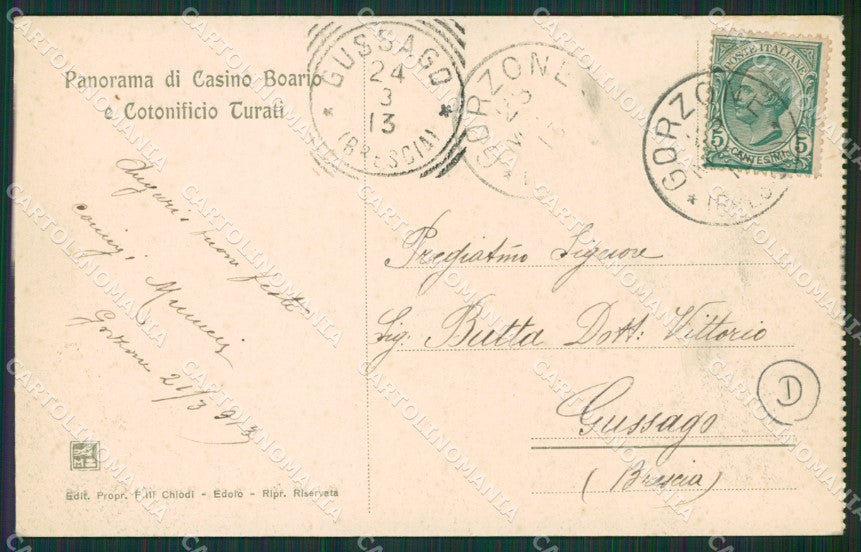 Panorama di Casino Boario
e Cotonificio Turati
GUSSAGO
24
3
13
(BRESCIA)
GORZONE
GORZONE
POSTE ITALIANE
5 5
CENTESIMI
Auguri, buone feste
Gorzone 21/3 913
Pregiatmo Signore
Sig. Butta Dott: Vittorio
Gussago
(Brescia)
D
Edit. Propr. F.lli Chiodi - Edolo - Ripr. Riservata
CARTOLINOMANIA